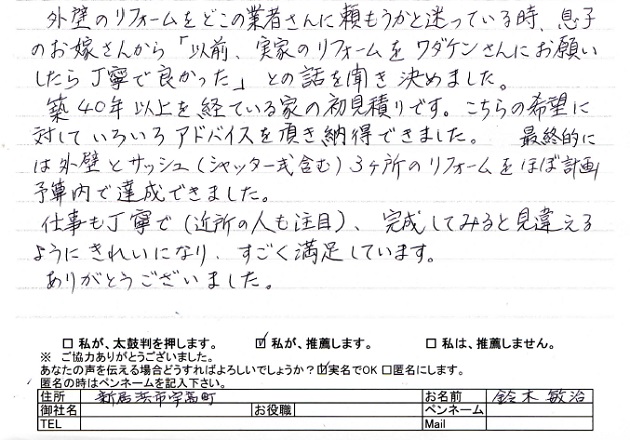 外壁のリフォームをどこの業者さんに頼もうかと迷っている時、息子
のお嫁さんから「以前、実家のリフォームをワダケンさんにお願い
したら丁寧で良かった」との話を聞き決めました。
築40年以上を経ている家の初見積りです。こちらの希望に
対していろいろアドバイスを頂き納得できました。 最終的に
は外壁とサッシュ(シャッター式含む)3ヶ所のリフォームをほぼ計画
予算内で達成できました。
仕事も丁寧で(近所の人も注目)、完成してみると見違える
ようにきれいになり、すごく満足しています。
ありがとうございました。
□ 私が、太鼓判を押します。 ☑ 私が、推薦します。 □ 私は、推薦しません。
※ ご協力ありがとうございました。
あなたの声を伝える場合どうすればよろしいでしょうか?☑実名でOK □匿名にします。
匿名の時はペンネームを記入下さい。
住所 新居浜市宇高町 お名前 鈴木敏治
御社名 お役職 ペンネーム
TEL Mail